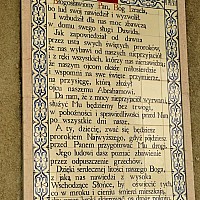 Błogosławiony Pan, Bóg Izraela,
bo lud swój nawiedził i wyzwolił.
I wzbudził dla nas moc zbawczą
w domu swego sługi Dawida.
Jak zapowiedział od dawna
przez usta swych świętych proroków,
że nas wybawi od naszych nieprzyjaciół
i z ręki wszystkich, którzy nas nienawidzą;
że naszym ojcom okaże miłosierdzie
i wspomni na swe święte przymierze,
przysięgę, którą złożył
ojcu naszemu Abrahamowi.
Da nam, że z mocy nieprzyjaciół wyrwani,
służyć Mu będziemy bez trwogi,
w pobożności i sprawiedliwości przed Nim
po wszystkie dni nasze.
A ty, dziecię, zwać się będziesz
prorokiem Najwyższego, gdyż pójdziesz
przed Panem przygotować Mu drogi.
Jego ludowi dasz poznać zbawienie
przez odpuszczenie grzechów,
Dzięki serdecznej litości naszego Boga,
z jaką nas nawiedzi z wysoka
Wschodzące Słońce, by oświecić tych,
co w mroku i cieniu śmierci mieszkają,